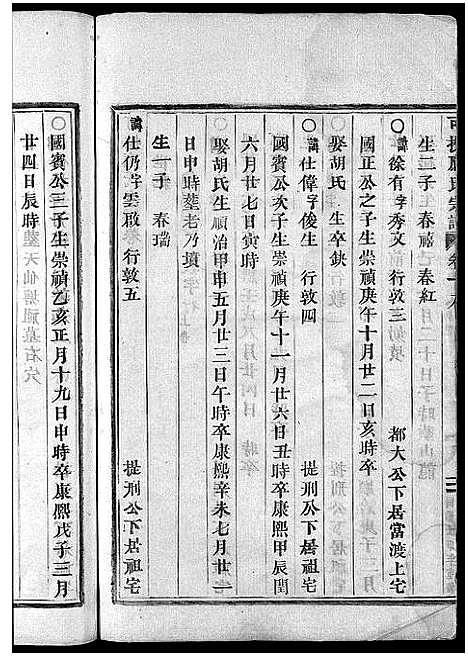 生二子 春 春紅
諱徐有字秀文 行敦三 都大公下居當渡上宅
國正公之子生崇禎庚午十月廿二日亥時卒
娶胡氏 生卒缺
諱仕偉字俊生 行敦四 提刑公下居祖宅
國賓公次子生崇禎庚午十一月廿六日丑時卒康熙甲辰閏
六月廿九日寅時
娶胡氏生順治甲申五月廿三日午時卒康熙辛未七月廿二
日申時塟老乃墳
生一子 春瑞
諱仕仍字雲啟 行敦五 提刑公下居祖宅
○國賓公三子生崇禎乙亥正月十九日申時卒康熙戊子三月
廿四日辰時塟天仙塘祖墓右穴